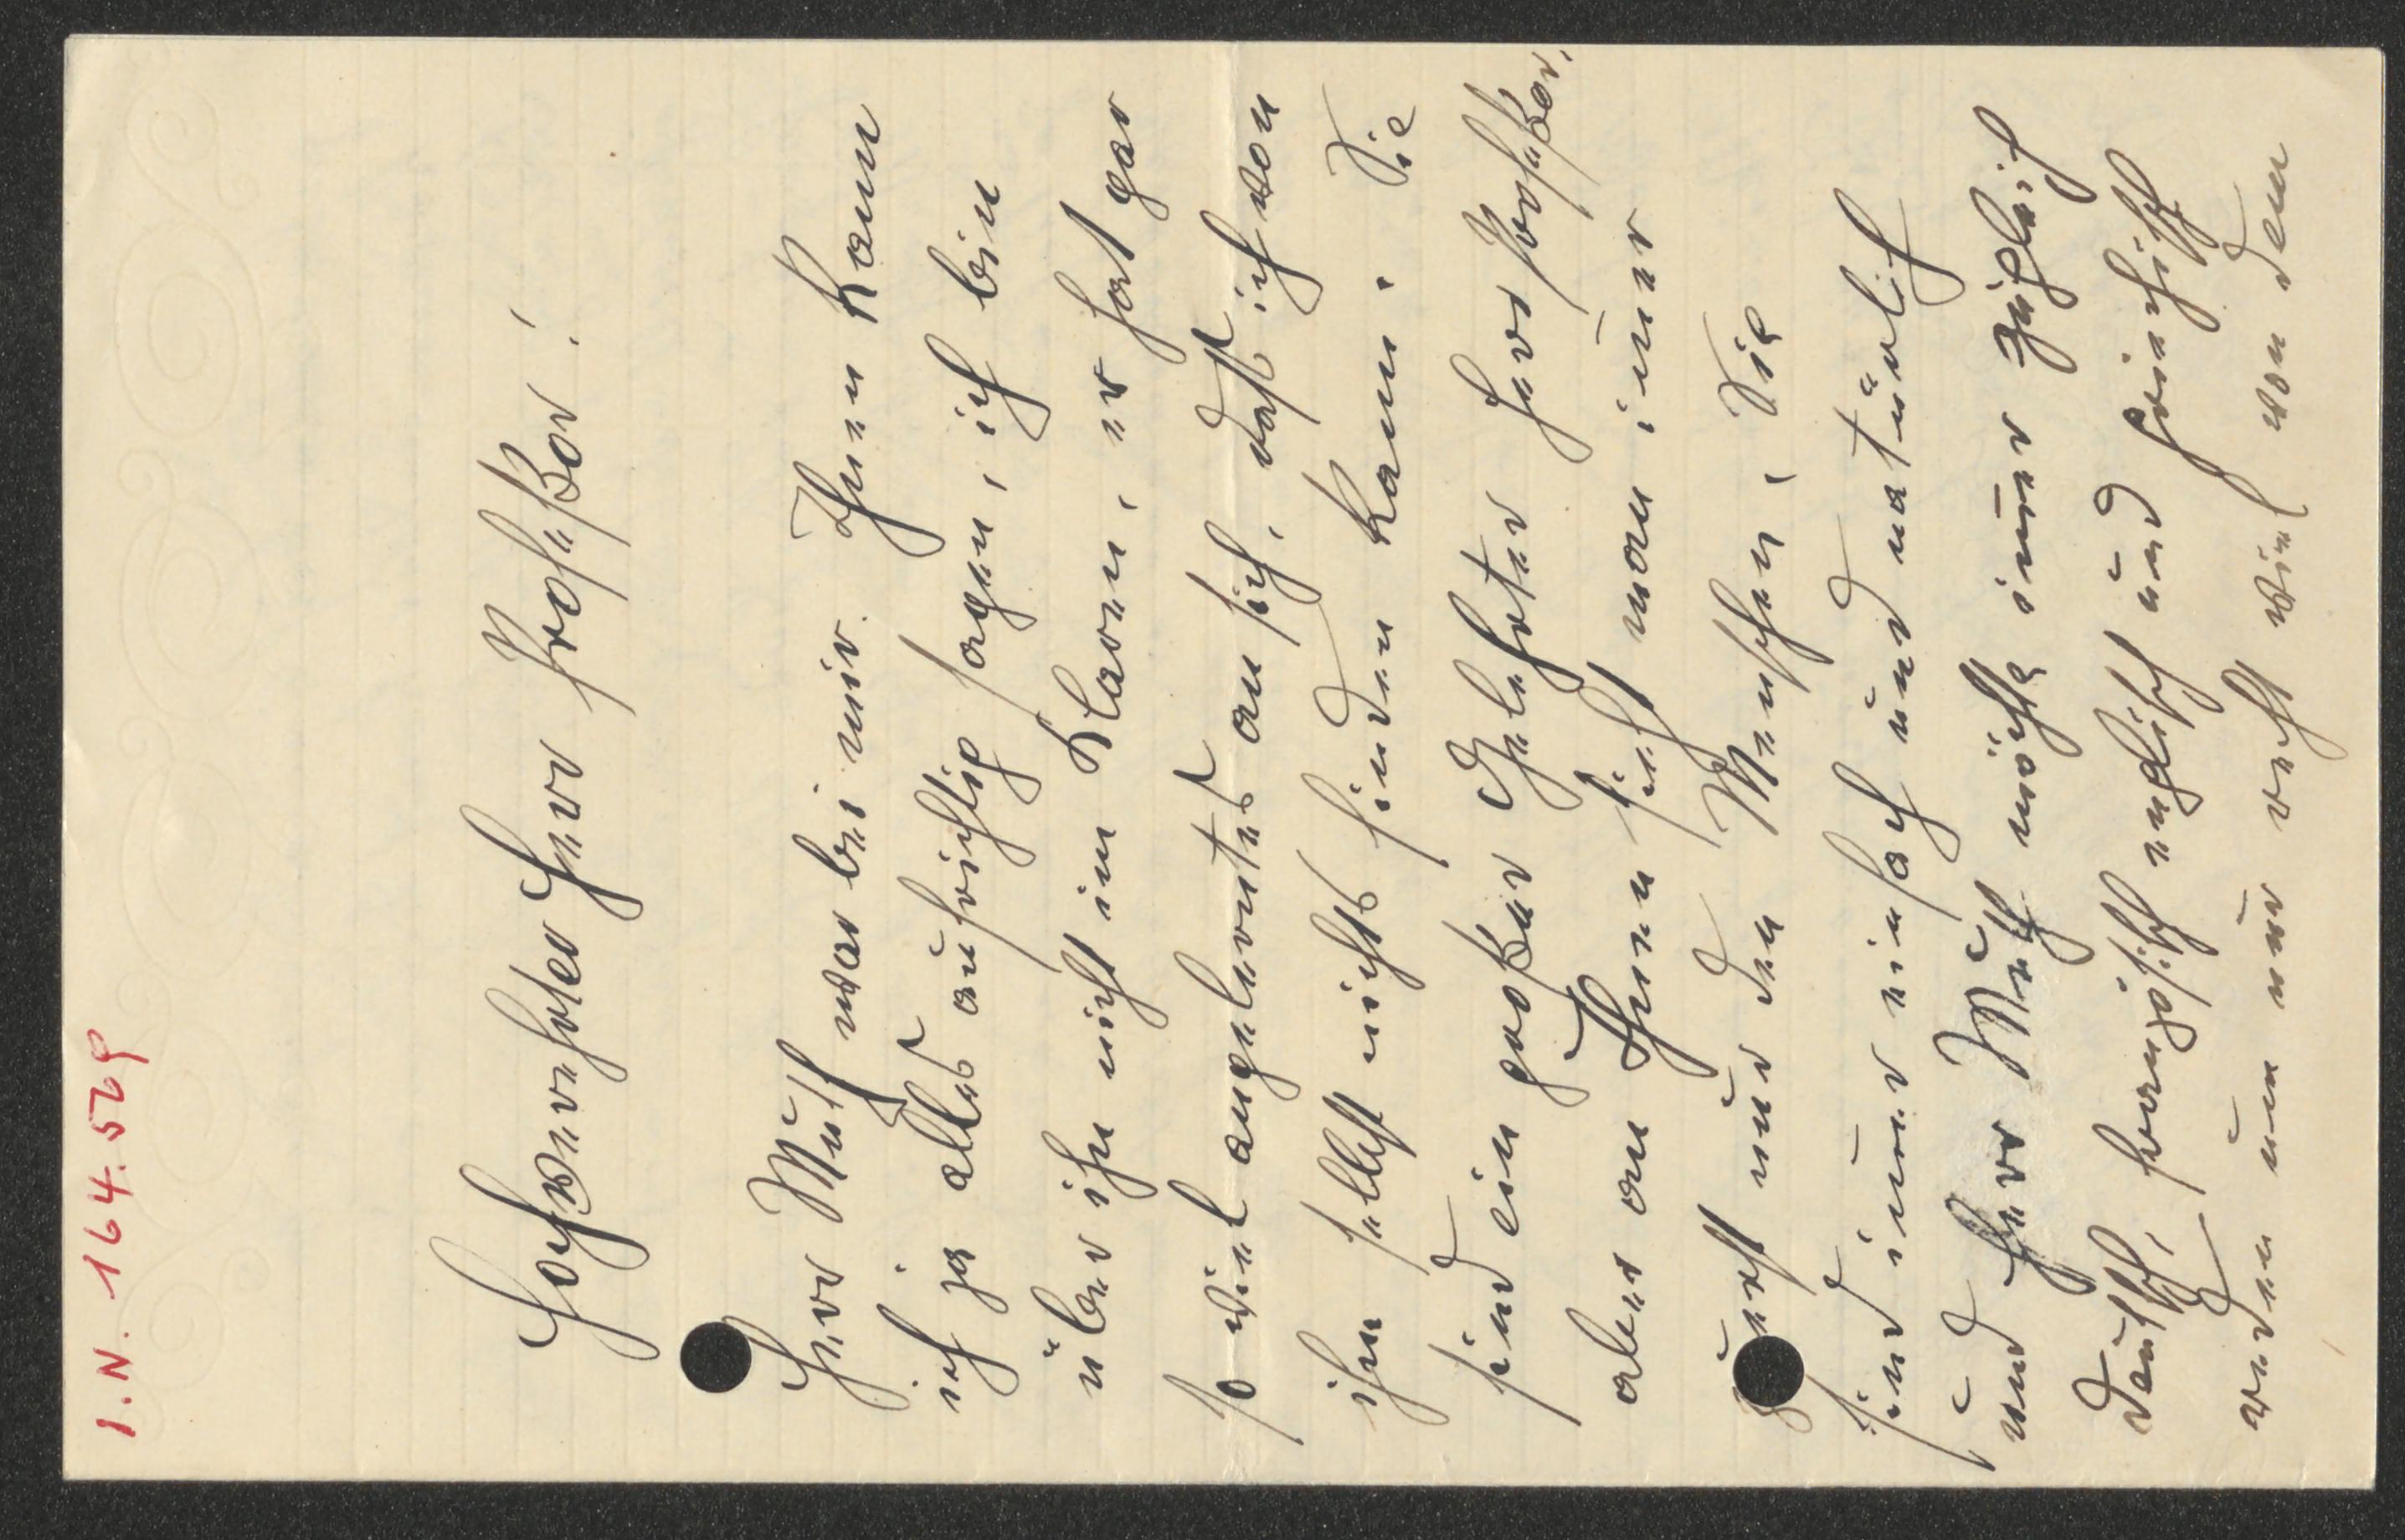 I.N. 164.569
Hochverehrter Herr Profeßor!
Herr Muth war bei mir. Ihnen kann
ich ja alles aufrichtig sagen, ich bin
über ihn nicht im Klaren, er hat gar
so viel angelerntes an sich, daß ich von
ihm selbst nichts finden kann. Sie
sind ein großer Gelehrter Herr Profeßor,
aber an Ihnen sieht man immer
zuerst nur den Menschen, Sie
sind immer einfach und natürlich
und Herr Muth möchte immer zugleich
deutsch, französisch englisch und griechisch
reden um nur recht viel von dem